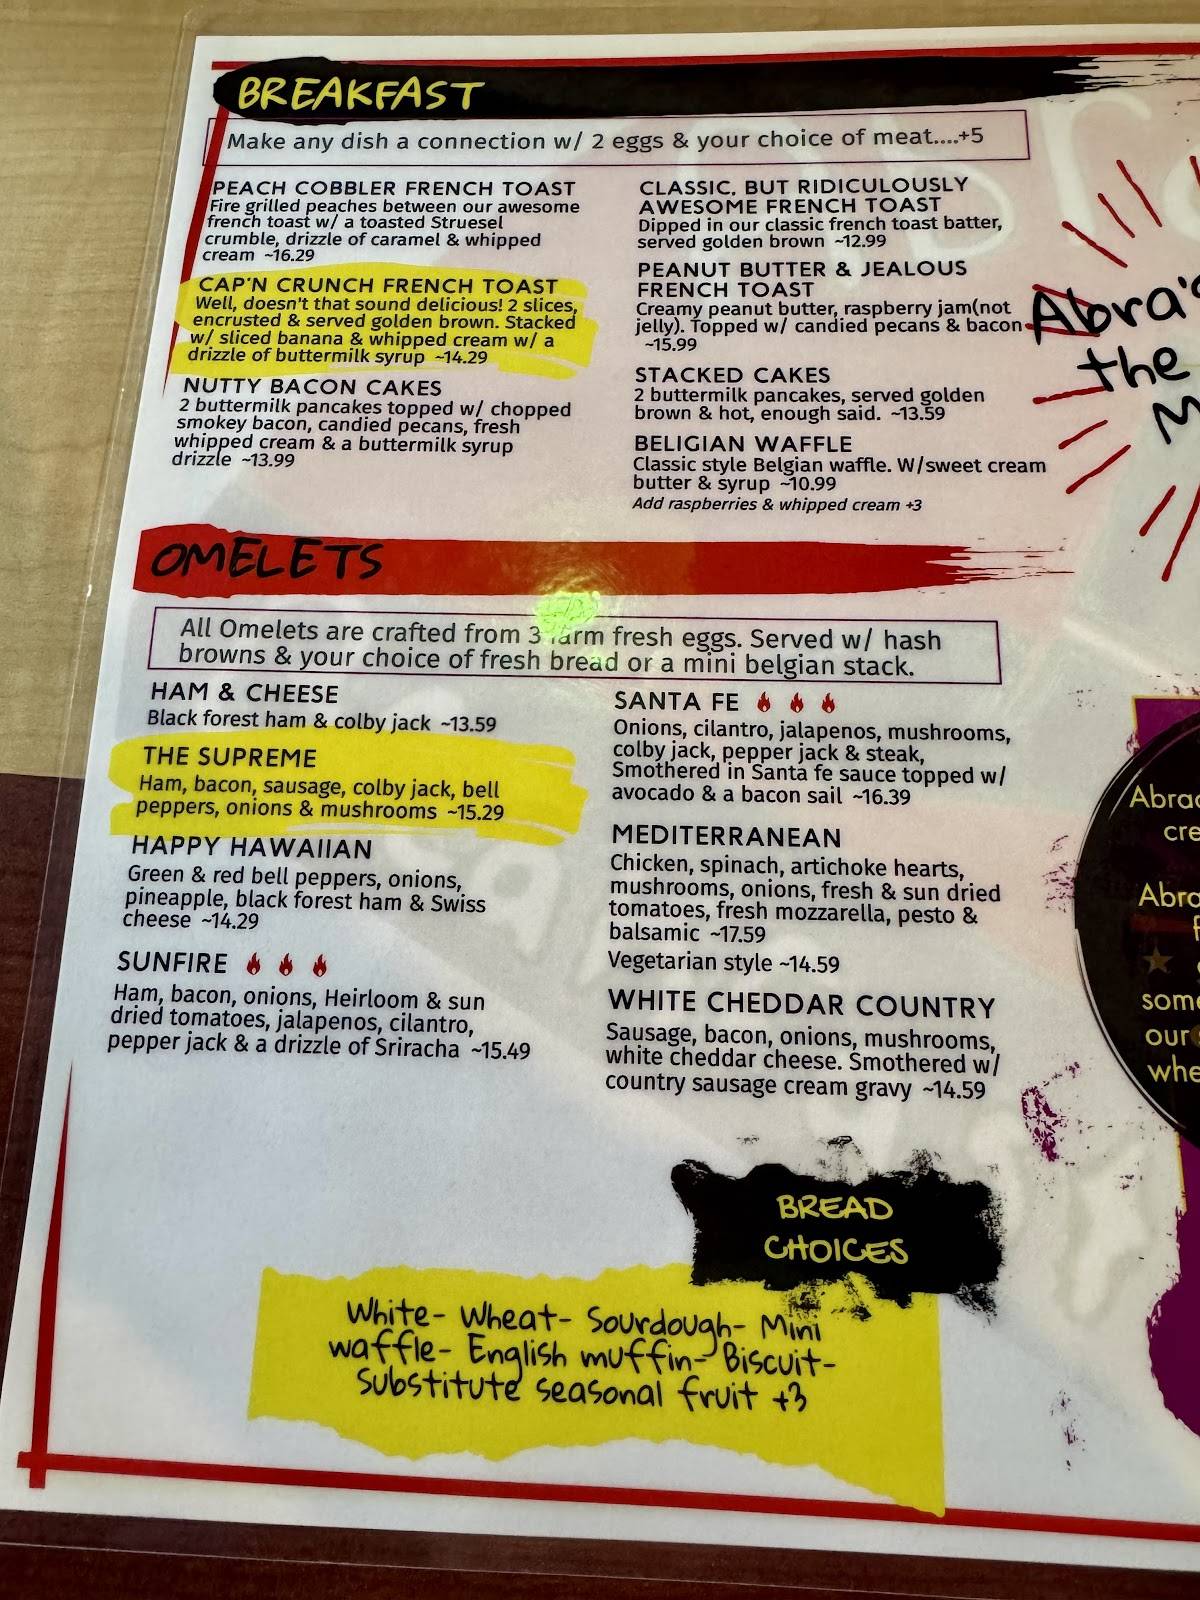 BREAKFAST
Make any dish a connection w/ 2 eggs & your choice of meat....+5
PEACH COBBLER FRENCH TOAST
Fire grilled peaches between our awesome
french toast w/ a toasted Struesel
crumble, drizzle of caramel & whipped
cream ~16.29
CAP'N CRUNCH FRENCH TOAST
Well, doesn't that sound delicious! 2 slices,
encrusted & served golden brown. Stacked
w/ sliced banana & whipped cream w/ a
drizzle of buttermilk syrup ~14.29
NUTTY BACON CAKES
2 buttermilk pancakes topped w/ chopped
smokey bacon, candied pecans, fresh
whipped cream & a buttermilk syrup
drizzle ~13.99
CLASSIC, BUT RIDICULOUSLY
AWESOME FRENCH TOAST
Dipped in our classic french toast batter,
served golden brown ~12.99
PEANUT BUTTER & JEALOUS
FRENCH TOAST
Creamy peanut butter, raspberry jam(not
jelly). Topped w/ candied pecans & bacon
~15.99
STACKED CAKES
2 buttermilk pancakes, served golden
brown & hot, enough said. ~13.59
BELIGIAN WAFFLE
Classic style Belgian waffle. W/sweet cream
butter & syrup ~10.99
Add raspberries & whipped cream +3
Abra's
the
OMELETS
All Omelets are crafted from 3 farm fresh eggs. Served w/ hash
browns & your choice of fresh bread or a mini belgian stack.
HAM & CHEESE
Black forest ham & colby jack ~13.59
THE SUPREME
Ham, bacon, sausage, colby jack, bell
peppers, onions & mushrooms ~15.29
HAPPY HAWAIIAN
Green & red bell peppers, onions,
pineapple, black forest ham & Swiss
cheese ~14.29
SUNFIRE
Ham, bacon, onions, Heirloom & sun
dried tomatoes, jalapenos, cilantro,
pepper jack & a drizzle of Sriracha ~15.49
SANTA FE
Onions, cilantro, jalapenos, mushrooms,
colby jack, pepper jack & steak,
Smothered in Santa fe sauce topped w/
avocado & a bacon sail ~16.39
MEDITERRANEAN
Chicken, spinach, artichoke hearts,
mushrooms, onions, fresh & sun dried
tomatoes, fresh mozzarella, pesto &
balsamic ~17.59
Vegetarian style ~14.59
WHITE CHEDDAR COUNTRY
Sausage, bacon, onions, mushrooms,
white cheddar cheese. Smothered w/
country sausage cream gravy ~14.59
BREAD
CHOICES
White- Wheat- Sourdough- Mini
waffle- English muffin- Biscuit-
Substitute seasonal fruit +3